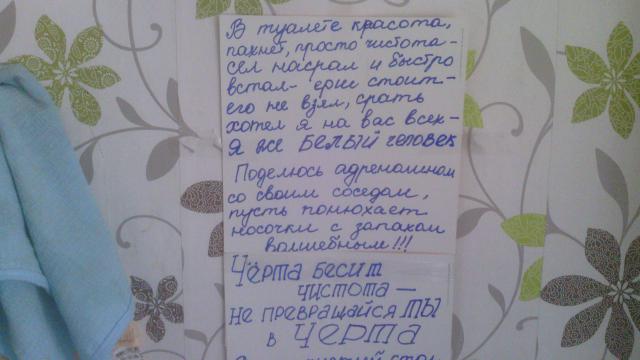 В туалете красота,
пахнет, просто чистота -
сел насрал и быстро
встал - ёрш стоит -
его не взял, срать
хотел я на вас всех -
Я же БЕЛЫЙ человек
Поделюсь адреналином
со своим соседом,
пусть понюхает
носочки с запахом
волшебным!!!
ЧЁРТА БЕСИТ
ЧИСТОТА —
НЕ ПРЕВРАЩАЙСЯ ТЫ
В ЧЕРТА